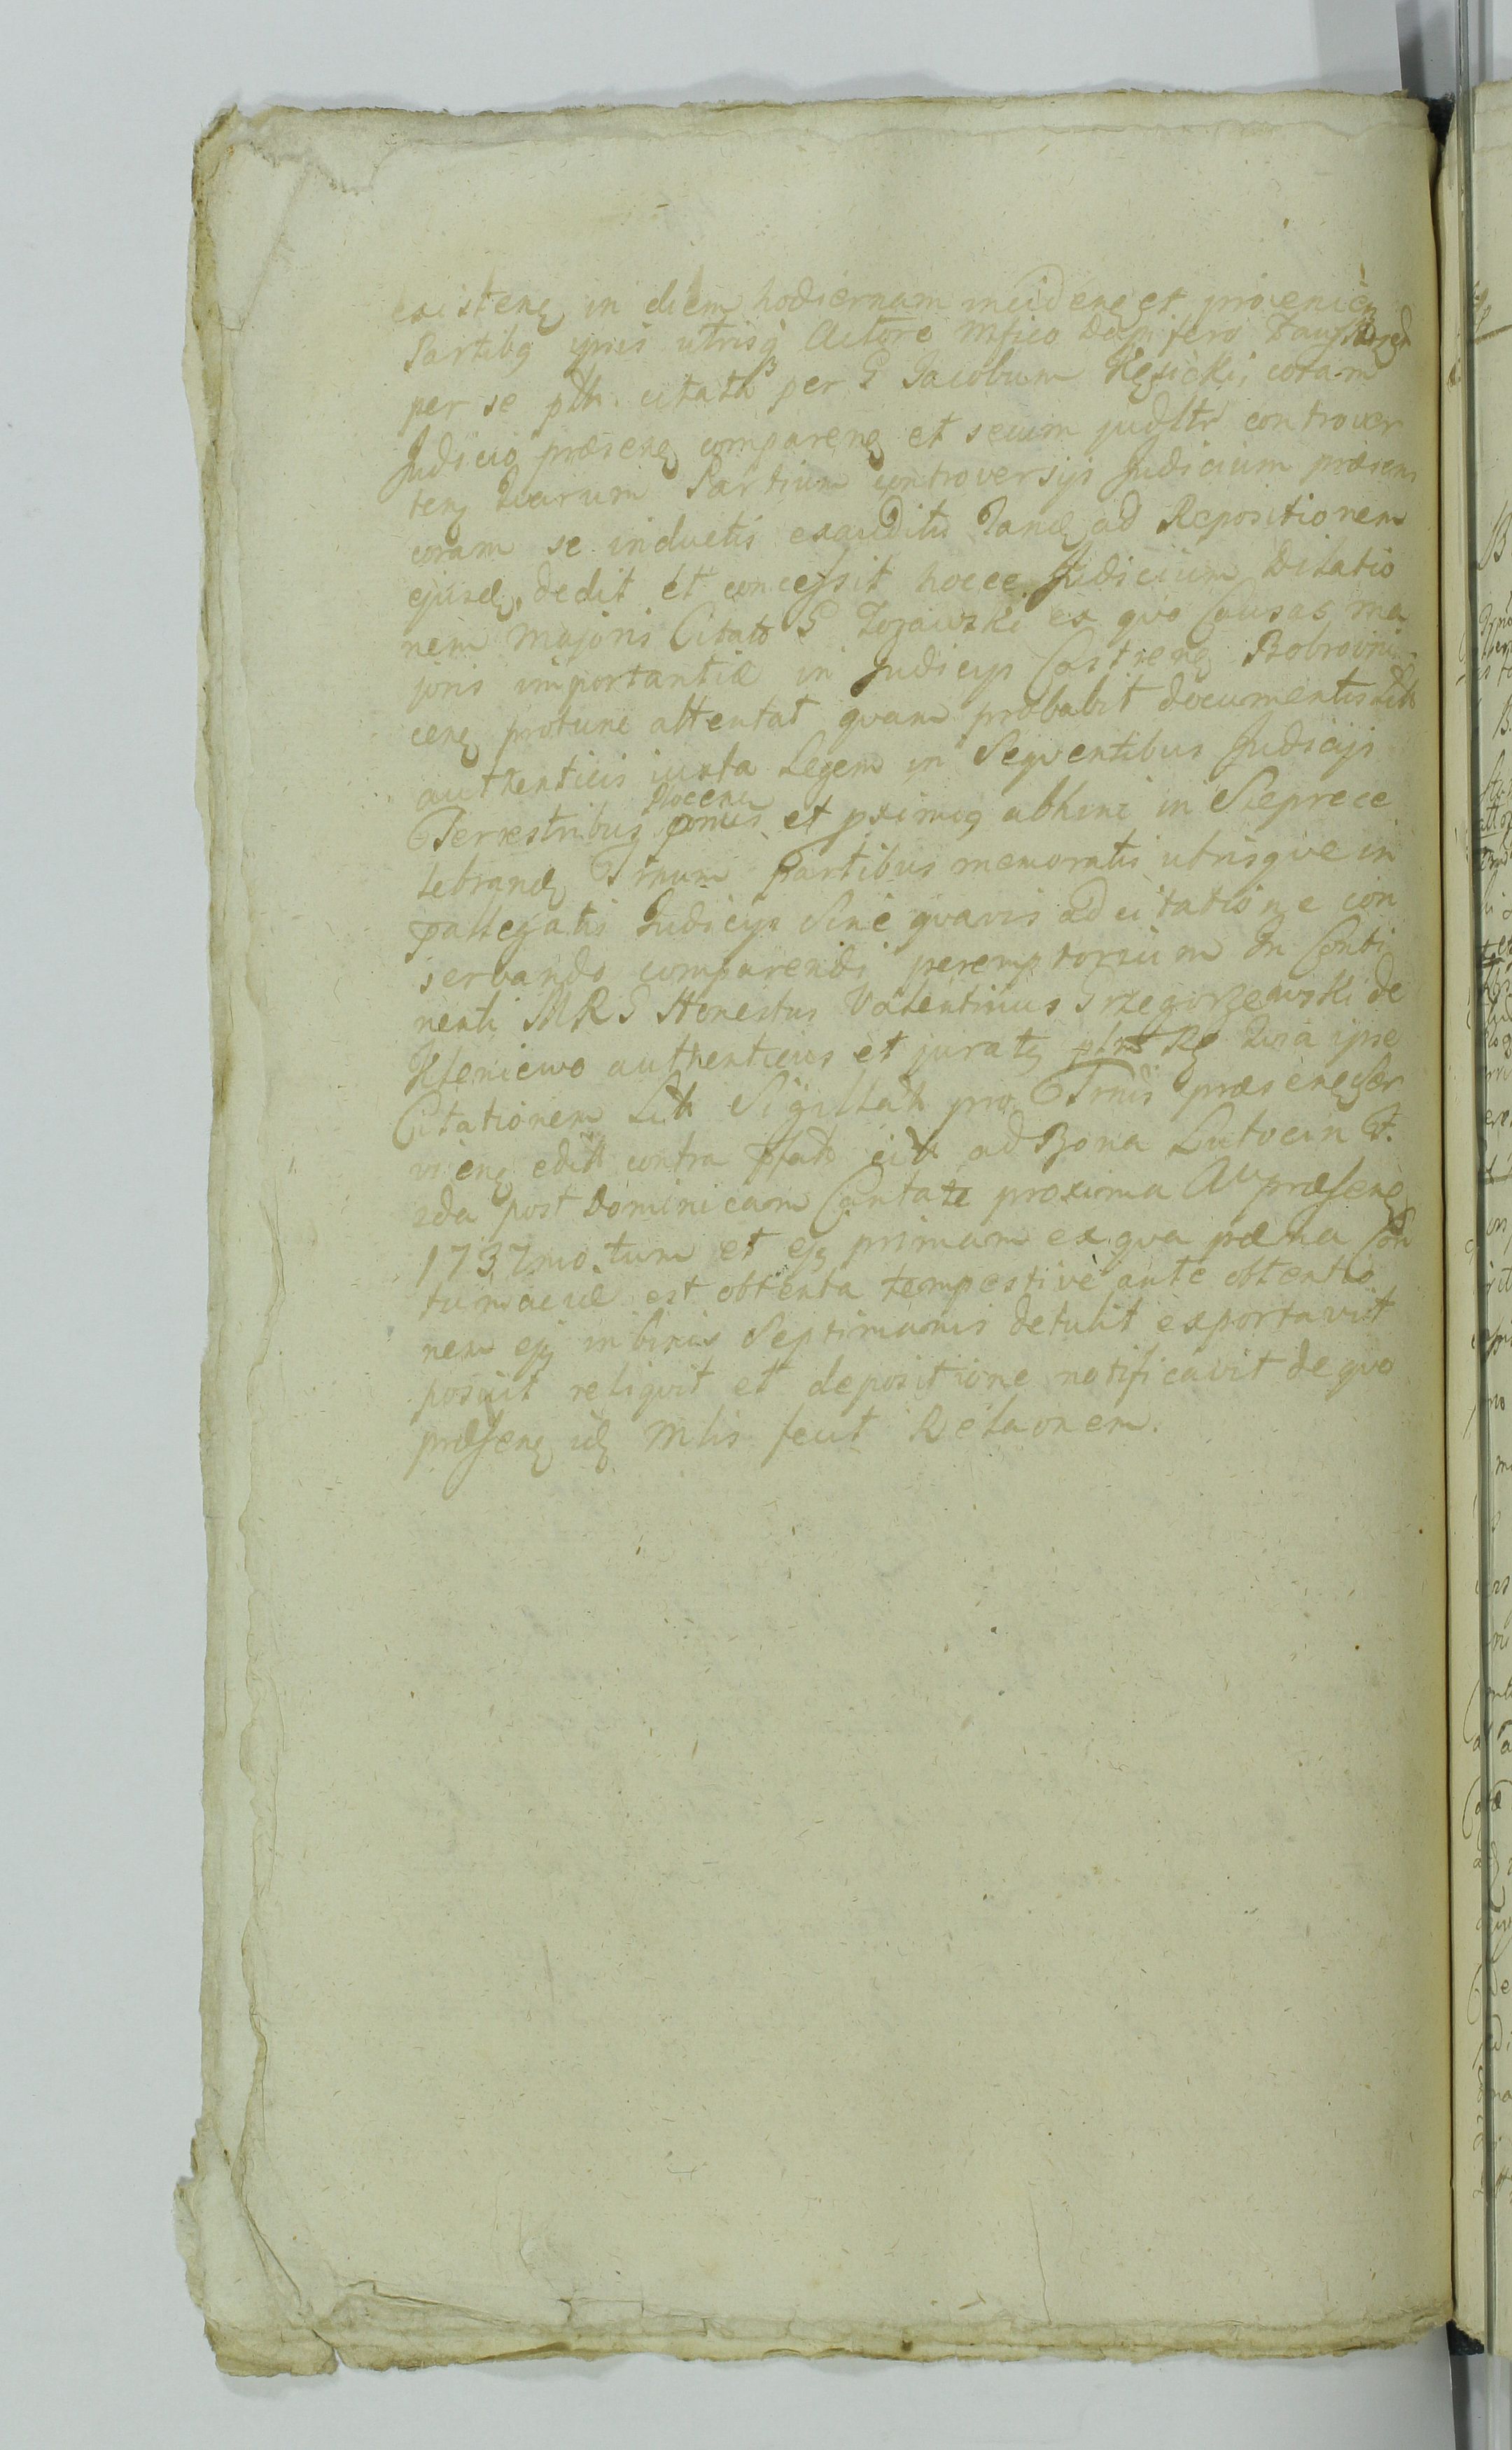 existenę in diem hodiernam incidenę et provenien
Partibg ipsis utrisq Actore Mfico Dapifero
per se pth. citath per G Jacobum Kęsicki coram
Judicio præsenę comparenę et secum judltr controver
tenę Quarum Partium controversys Judicium præsens
coram se inductis exauditis Tandę ad Repositionem
ejusdę, dedit et concessit hocce Judicium Dilatio
nem Majoris Citato G Zozawski ex quo Causas ma
joris importantiæ in Judicys Castrenę Bobrovni
cenę protunc attentat quam probabit documentis
authenticis iuxta Legem in Seqventibus Judicys
Terrestribus Plocenę et pximię abhinc in Sieprc ce
lebrandę Trnum partibus memoratis utrisqve in
pallegatis Judicys Sine qvavis adcitatione con
servando comparendi peremptorium In Conti
nenti MRS Honestus Valentinus Grzegorzewski de
Kleniewo authenticus et juratę Rę Quia ipse
Citationem Lith Sigillath pro Trmis præsenę ser
vienę edith contra pfath cith ad Bona Lutocin F.
2da post Dominicam Cantate proxima Ao præsenę
1737mo tum et ejg primam ex qva pæna Con
tumaciæ est obtenta tempestivè ante obtentio
nem ejg in binis Septimanis detulit exportavit
posuit reliqvit et depositione notificavit de qvo
præsenę idę Mlis fecit Relaonem.